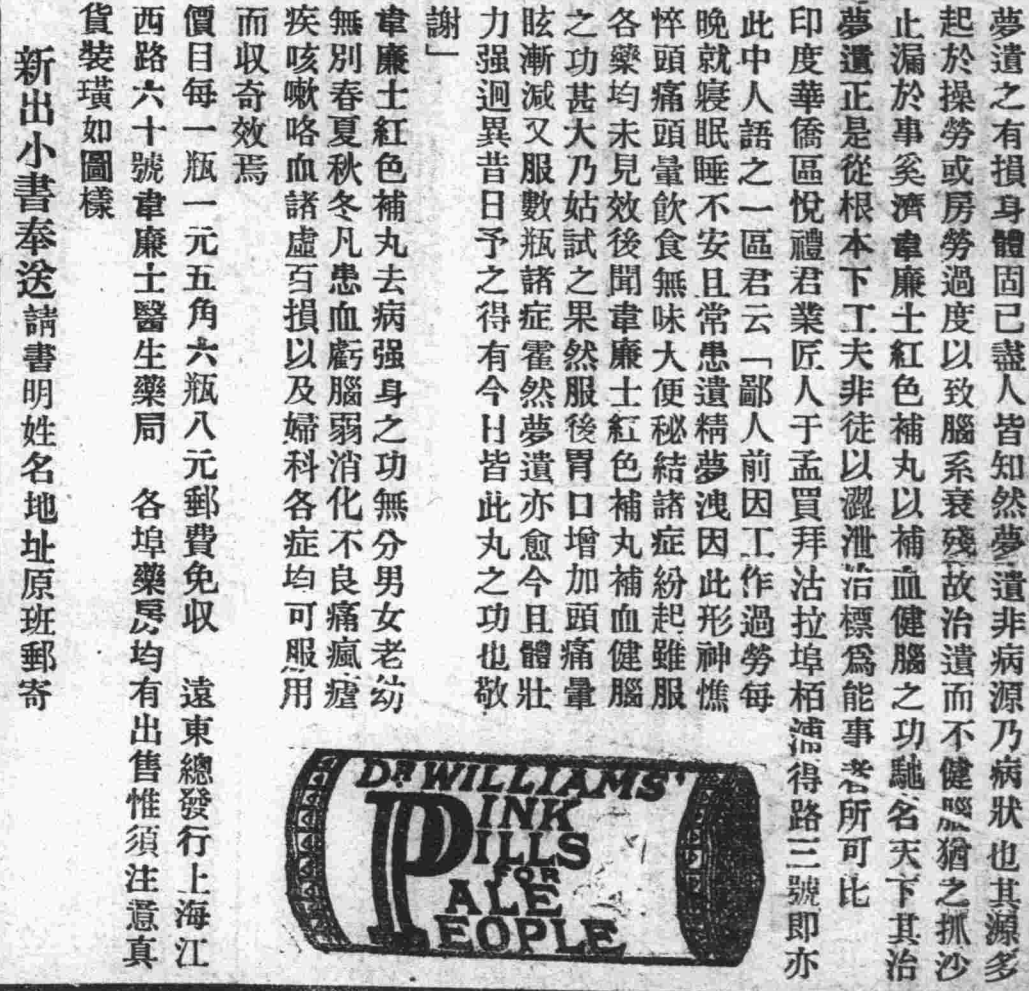 夢遺之有損身體固已盡人皆知然夢遺非病源乃病狀也其源多
起於操勞或房勞過度以致腦系衰殘故治遺而不健腦猶之抓沙
止漏於事奚濟韋廉士紅色補丸以補血健腦之功馳名天下其治
夢遺正是從根本下工夫非徒以澀泄治標爲能事者所可比
印度華僑區悅禮君業匠人于孟買拜沽拉埠栢浦得路三號即亦
此中人語之一區君云「鄙人前因工作過勞每
晚就寢眠睡不安且常患遺精夢洩因此形神憔
悴頭痛頭暈飲食無味大便秘結諸症紛起雖服
各藥均未見效後聞韋廉士紅色補丸補血健腦
之功甚大乃姑試之果然服後胃口增加頭痛暈
眩漸減又服數瓶諸症霍然夢遺亦愈今且體壯
力强迥異昔日予之得有今日皆此丸之功也敬
謝」
韋廉士紅色補丸去病强身之功無分男女老幼
無別春夏秋冬凡患血虧腦弱消化不良痛瘋瘧
疾咳嗽咯血諸虛百損以及婦科各症均可服用
而收奇效焉
價目每一瓶一元五角六瓶八元郵費免収 遠東總發行上海江
西路六十號韋廉士醫生藥局 各埠藥房均有出售惟須注意真
貨裝璜如圖樣
新出小書奉送請書明姓名地址原班郵寄
DR WILLIAMS'
PINK
PILLS
FOR
PALE
PEOPLE